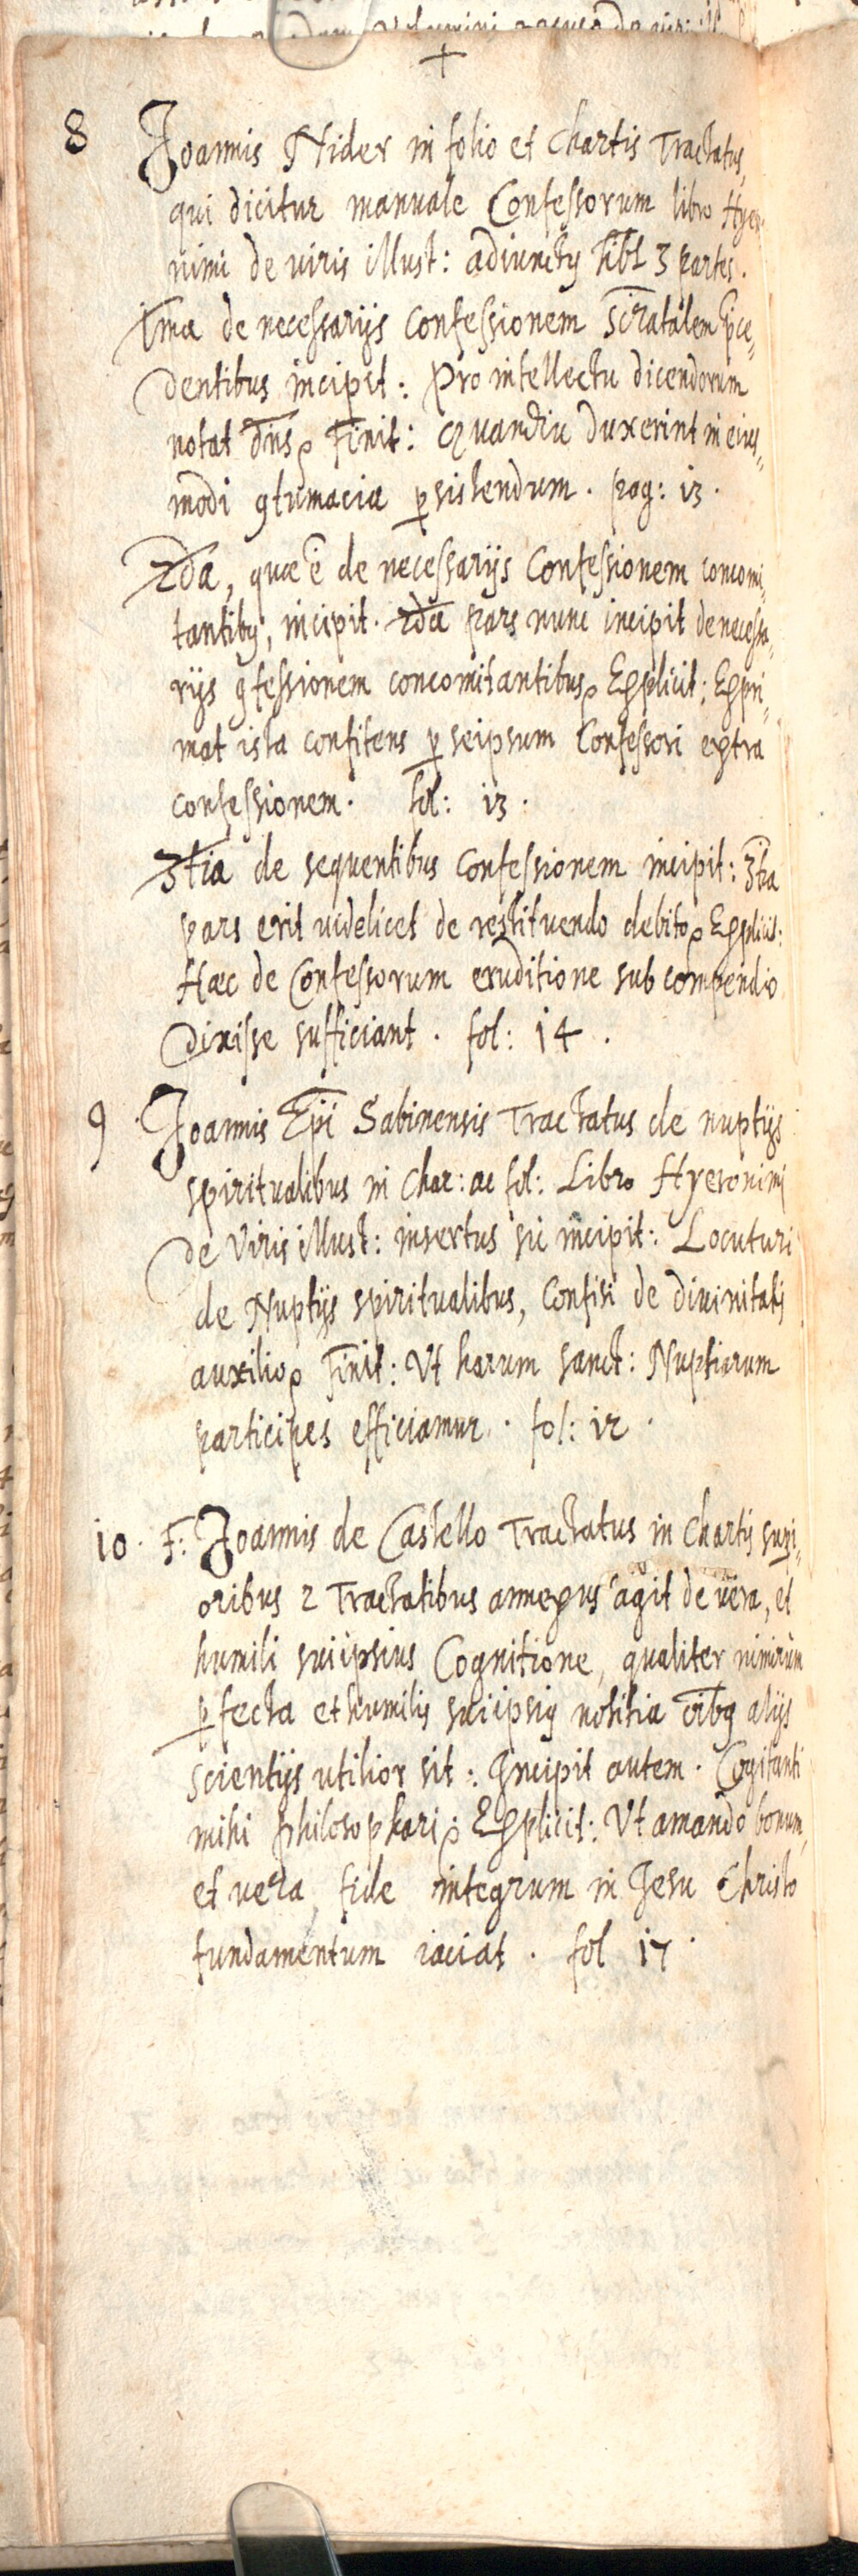 +
8 Joannis Nider in folio et chartis Tractatus,
qui dicitur manuale Confessorum libro Hyer-
nimi de viris illust: adiunctus hãbt 3 partes.
1ma de necessarijs confessionem Scr̃atalem p̃ce,,
dentibus incipit: Pro intellectu dicendorum
notat dñs. Finit: Quandiu duxerint in eius,,
modi ꝯtumacia ꝑsistendum. pag: 13.
2da, quæ ẽ de necessarijs Confessionem concomi,,
tantibꝰ, incipit. 2da pars nunc incipit de necessa,,
rijs ꝯfessionem concomitantibus. Explicit: Expri,,
mat ista confitens ꝑ seipsum Confessori extra
confessionem. fol: 13.
3tia de sequentibus confessionem incipit: 3tia
pars erit videlicet de restituendo debito. Explicit:
Hæc de Confessorum eruditione sub compendio
dixisse sufficiant. fol: 14.
9 Joannis Ep̃i Sabinensis Tractatus de nuptijs
spiritualibus in char: ac fol: Libro Hyeronimi
de Viris illust: insertus sic incipit: Locuturi
de Nuptijs spiritualibus, confisi de diuinitatis
auxilio. Finit: Vt harum sanct: Nuptiarum
participes efficiamur. fol: 12.
10. F: Joannis de Castello Tractatus in chartis supi,,
oribus 2 Tractatibus annexus agit de vera, et
humili suiipsius Cognitione, qualiter nimirum
ꝑfecta et humilis suiipsiꝰ notitia oĩbꝰ alijs
scientijs utilior sit: Incipit autem. Cogitanti
mihi philosophari. Explicit: Vt amando bonum,
et vera fide integrum in Jesu Christo
fundamentum iaciat. fol 17.